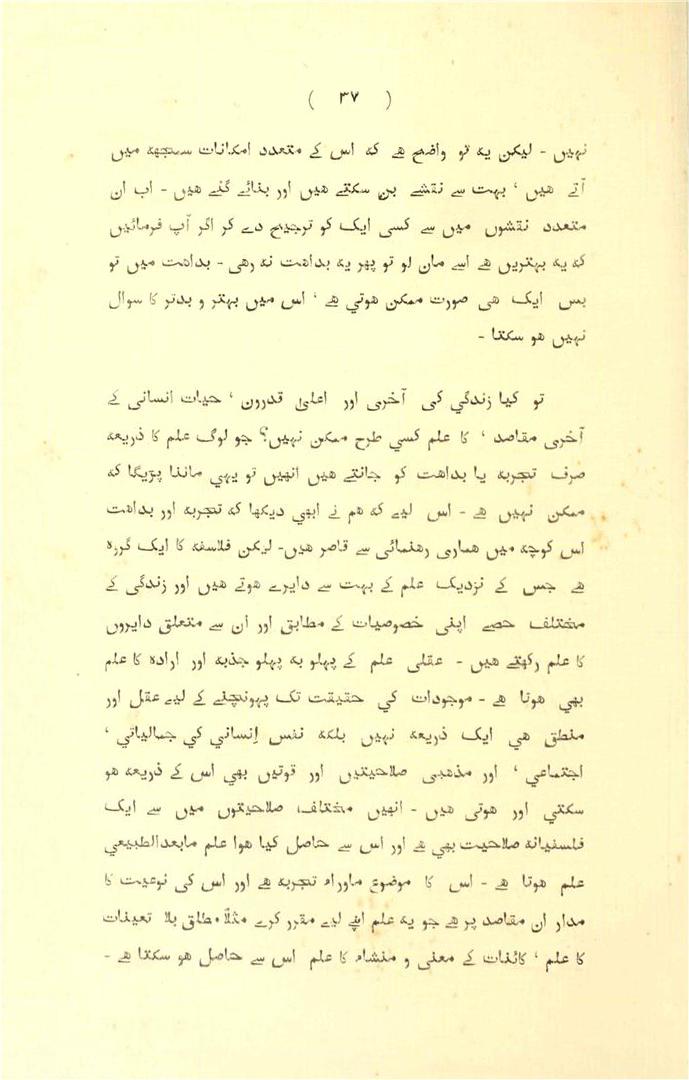 ( ۳۷ )
نہیں - لیکن یہ تو واضح ہے کہ اس کے متعدد امکانات سمجھہ میں
آتے ہیں ' بہت سے نقشے بن سکتے ہیں اور بنائے گئے ہیں - اب ان
متعدد نقشوں میں سے کسی ایک کو ترجیح دے کر اگر آپ فرمائیں
کہ یہ بہترین ہے اسے مان لو تو پھر یہ بداہت نہ رہی - بداہت میں تو
بس ایک ہی صورت ممکن ہوتی ہے ' اس میں بہتر و بدتر کا سوال
نہیں ہو سکتا -
تو کیا زندگی کی آخری اور اعلیٰ قدرون ' حیات انسانی کے
آخری مقاصد ' کا علم کسی طرح ممکن نہیں؟ جو لوگ علم کا ذریعہ
صرف تجربہ یا بداہت کو جانتے ہیں انہیں تو یہی ماننا پڑیگا کہ
ممکن نہیں ہے - اس لیے کہ ہم نے ابھی دیکھا کہ تجربہ اور بداہت
اس کوچہ میں ہماری رہنمائی سے قاصر ہیں - لیکن فلاسفہ کا ایک گروہ
ہے جس کے نزدیک علم کے بہت سے دایرے ہوتے ہیں اور زندگی کے
مختلف حصے اپنی خصوصیات کے مطابق اور ان سے متعلق دایروں
کا علم رکھتے ہیں - عقلی علم کے پہلو بہ پہلو جذبہ اور ارادہ کا علم
بھی ہوتا ہے - موجودات کی حقیقت تک پہونچنے کے لیے عقل اور
منطق ہی ایک ذریعہ نہیں بلکہ نفس اِنسانی کی جمالیاتی '
اجتماعی ' اور مذہبی صلاحیتیں اور قوتیں بھی اس کے ذریعہ ہو
سکتی اور ہوتی ہیں - انہیں مختلف صلاحیتوں میں سے ایک
فلسفیانہ صلاحیت بھی ہے اور اس سے حاصل کیا ہوا علم مابعدالطبیعی
علم ہوتا ہے - اس کا موضوع ماوراء تجربہ ہے اور اس کی نوعیت کا
مدار ان مقاصد پر ہے جو یہ علم اپنے لیے مقرر کرے مثلاً مطلق بلا تعینات
کا علم ' کائنات کے معنی و منشاء کا علم اس سے حاصل ہو سکتا ہے -